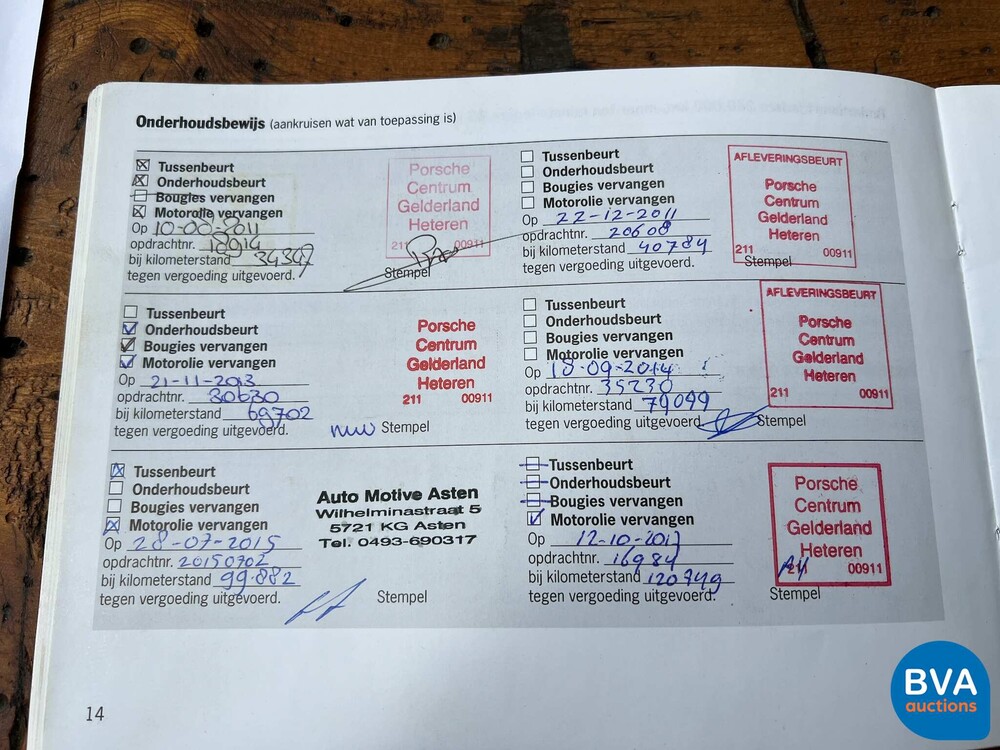 Onderhoudsbewijs (aankruisen wat van toepassing is)
Tussenbeurt
Onderhoudsbeurt
Bougies vervangen
Motorolie vervangen
Op 10-08-2011
opdrachtnr. 18914
bij kilometerstand 34347
tegen vergoeding uitgevoerd.
Stempel
Porsche
Centrum
Gelderland
Heteren
211 00911
Tussenbeurt
Onderhoudsbeurt
Bougies vervangen
Motorolie vervangen
Op 22-12-2011
opdrachtnr. 20608
bij kilometerstand 40784
tegen vergoeding uitgevoerd.
Stempel
AFLEVERINGSBEURT
Porsche
Centrum
Gelderland
Heteren
211 00911
Tussenbeurt
Onderhoudsbeurt
Bougies vervangen
Motorolie vervangen
Op 21-11-2013
opdrachtnr. 30630
bij kilometerstand 69702
tegen vergoeding uitgevoerd.
Stempel
Porsche
Centrum
Gelderland
Heteren
211 00911
Tussenbeurt
Onderhoudsbeurt
Bougies vervangen
Motorolie vervangen
Op 18-09-2014
opdrachtnr. 35230
bij kilometerstand 79099
tegen vergoeding uitgevoerd.
Stempel
AFLEVERINGSBEURT
Porsche
Centrum
Gelderland
Heteren
211 00911
Tussenbeurt
Onderhoudsbeurt
Bougies vervangen
Motorolie vervangen
Op 28-07-2015
opdrachtnr. 20150702
bij kilometerstand 99.882
tegen vergoeding uitgevoerd.
Stempel
Auto Motive Asten
Wilhelminastraat 5
5721 KG Asten
Tel. 0493-690317
Tussenbeurt
Onderhoudsbeurt
Bougies vervangen
Motorolie vervangen
Op 12-10-2017
opdrachtnr. 16984
bij kilometerstand 120749
tegen vergoeding uitgevoerd.
Stempel
Porsche
Centrum
Gelderland
Heteren
211 00911
14
BVA
auctions